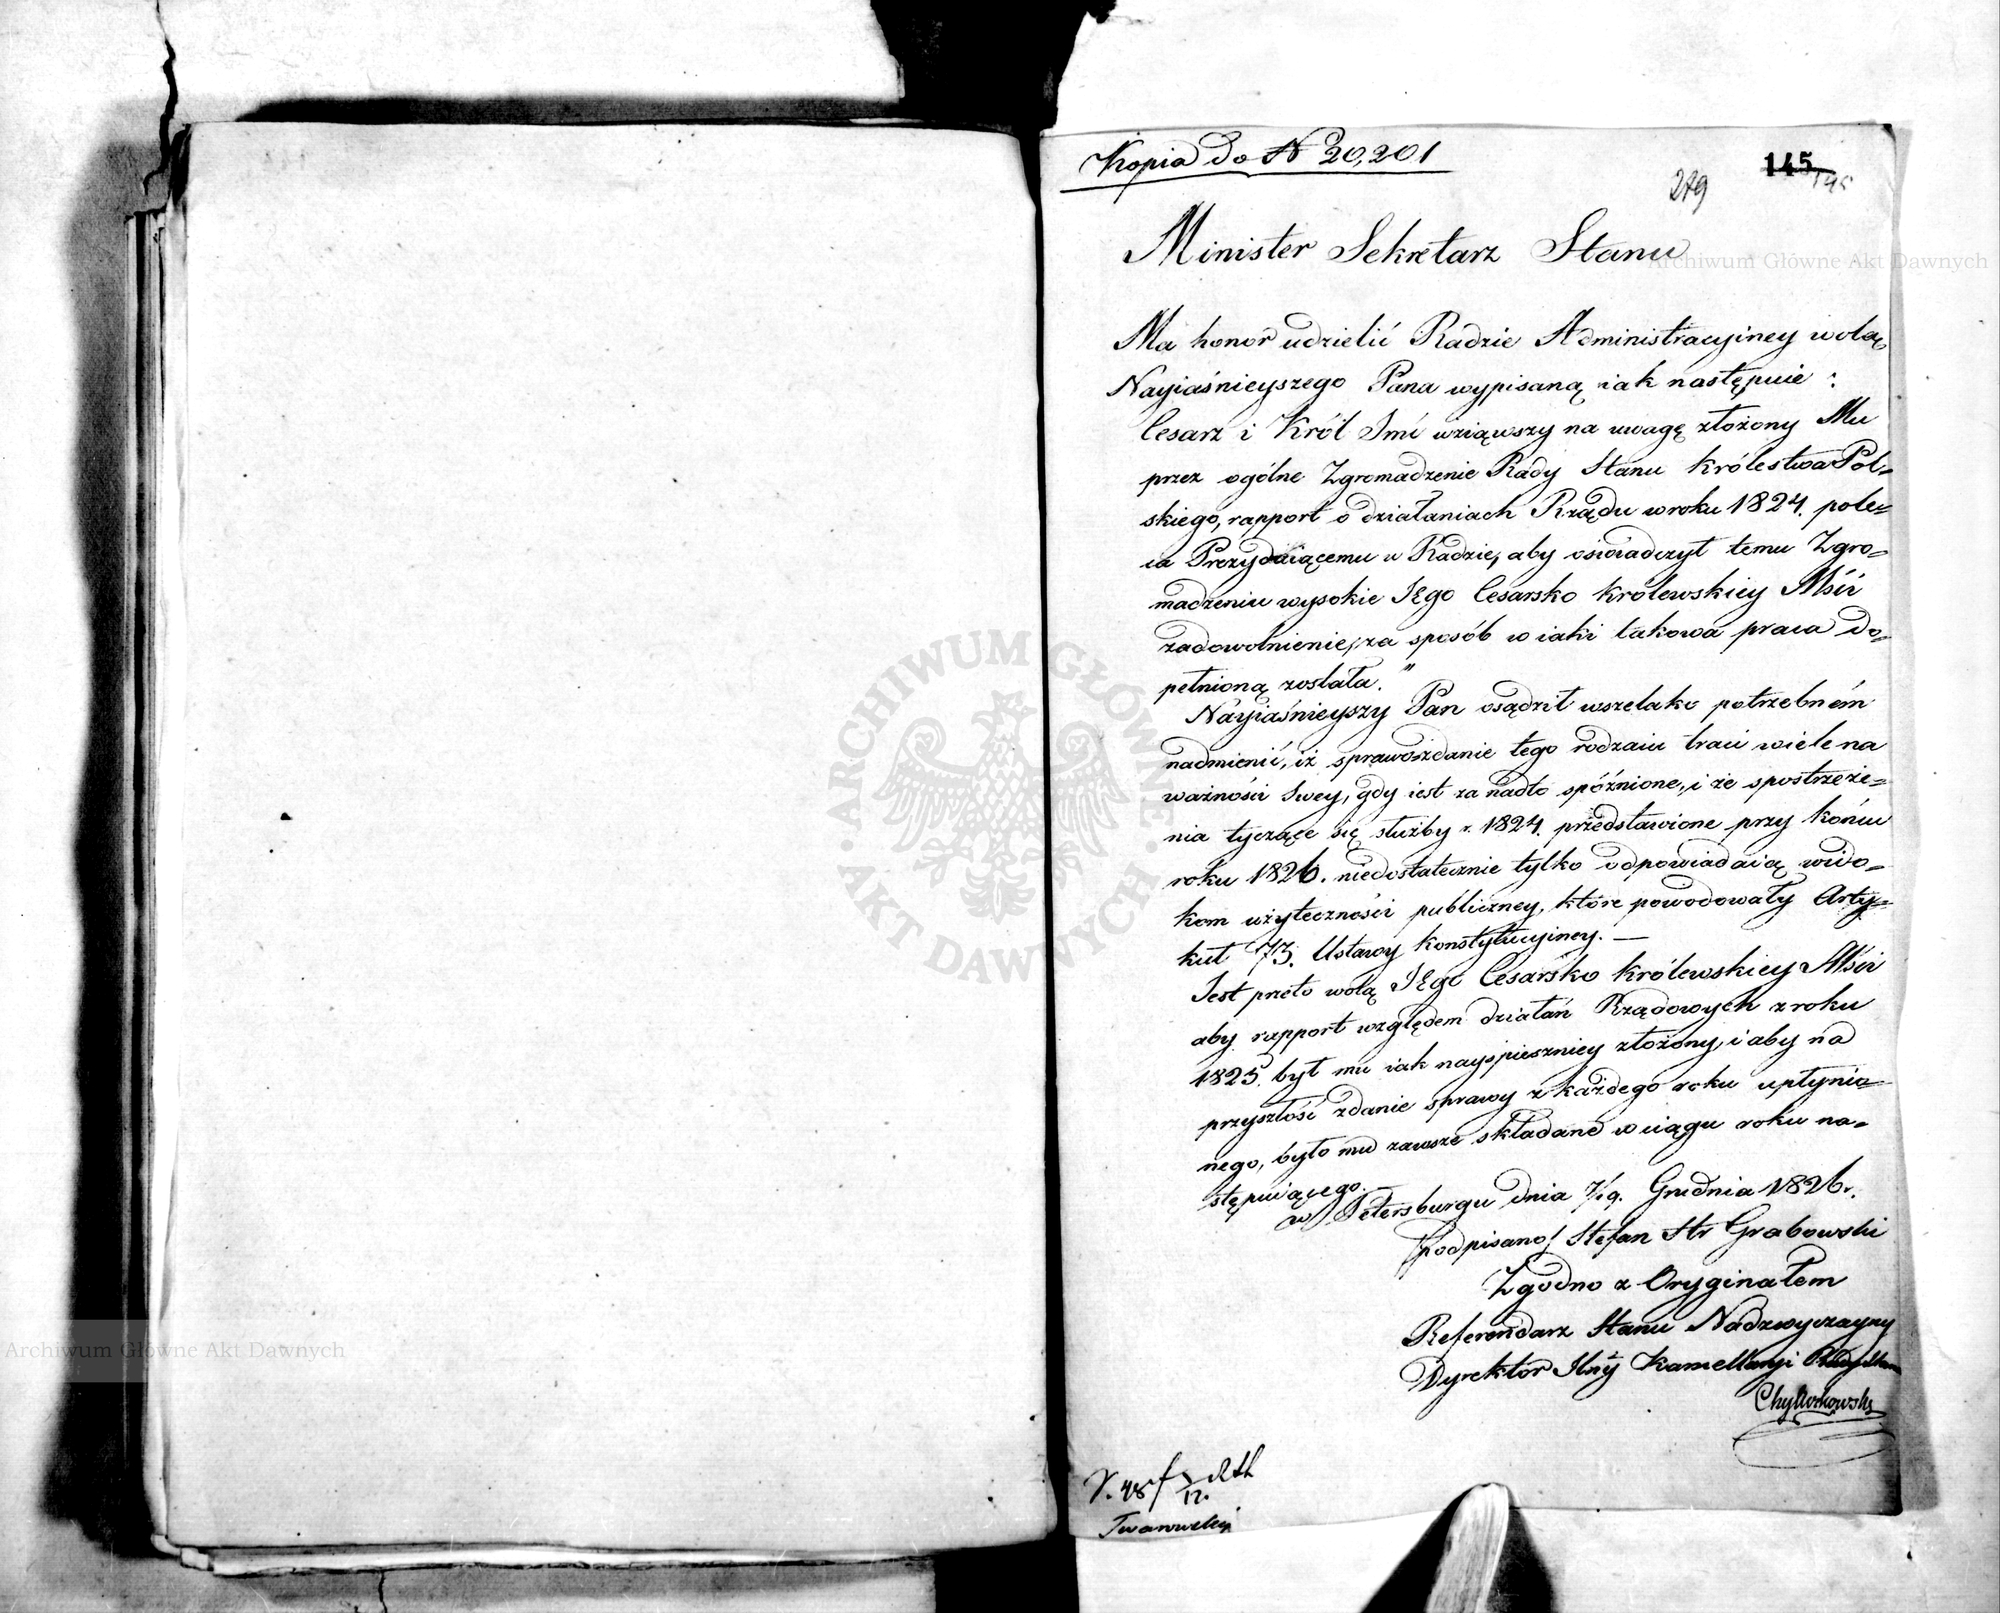 Kopia do N 20,201
145
145
219
Minister Sekretarz Stanu
Ma honor udzielić Radzie Administracyiney wolą
Nayiaśnieyszego Pana wypisaną iak następuie :
Cesarz i Król Jmć wziąwszy na uwagę złożony Mu
przez ogólne Zgromadzenie Rady Stanu Królestwa Pol=
skiego, rapport o działaniach Rządu w roku 1824. pole=
ca Prezyduiącemu w Radzie, aby oświadczył temu Zgro=
madzeniu wysokie JEgo Cesarsko Królewskiey Mści
zadowolnienie, za sposób w iaki takowa praca do=
pełnioną została."
Nayiaśnieyszy Pan osądził wszelako potrzebném
nadmienić, iż sprawozdanie tego rodzaiu traci wiele na
ważności swey, gdy iest za nadto spóźnione, i że spostrzeże=
nia tyczące się służby r. 1824. przedstawione przy końcu
roku 1826. niedostatecznie tylko odpowiadaią wido=
kom użyteczności publiczney, które powodowały Arty=
kuł 73. Ustawy Konstytucyiney. —
Jest przeto wolą JEgo Cesarsko Królewskiey Mści
aby rapport względem działań Rządowych z roku
1825. był mu iak nayspieszniey złożony, i aby na
przyszłość zdanie sprawy z każdego roku upłynio=
nego, było mu zawsze składane w ciągu roku na=
stępuiącego. —
w Petersburgu dnia 7/19. Grudnia 1826 r.
/podpisano/ Stefan Hr Grabowski
Zgodno z Oryginałem
Referendarz Stanu Nadzwyczayny
Dyrektor Jlny Kancellaryi Rady Stanu
V. 48
12.
Archiwum Główne Akt Dawnych
Archiwum Główne Akt Dawnych
ARCHIWUM GŁÓWNE · AKT DAWNYCH ·